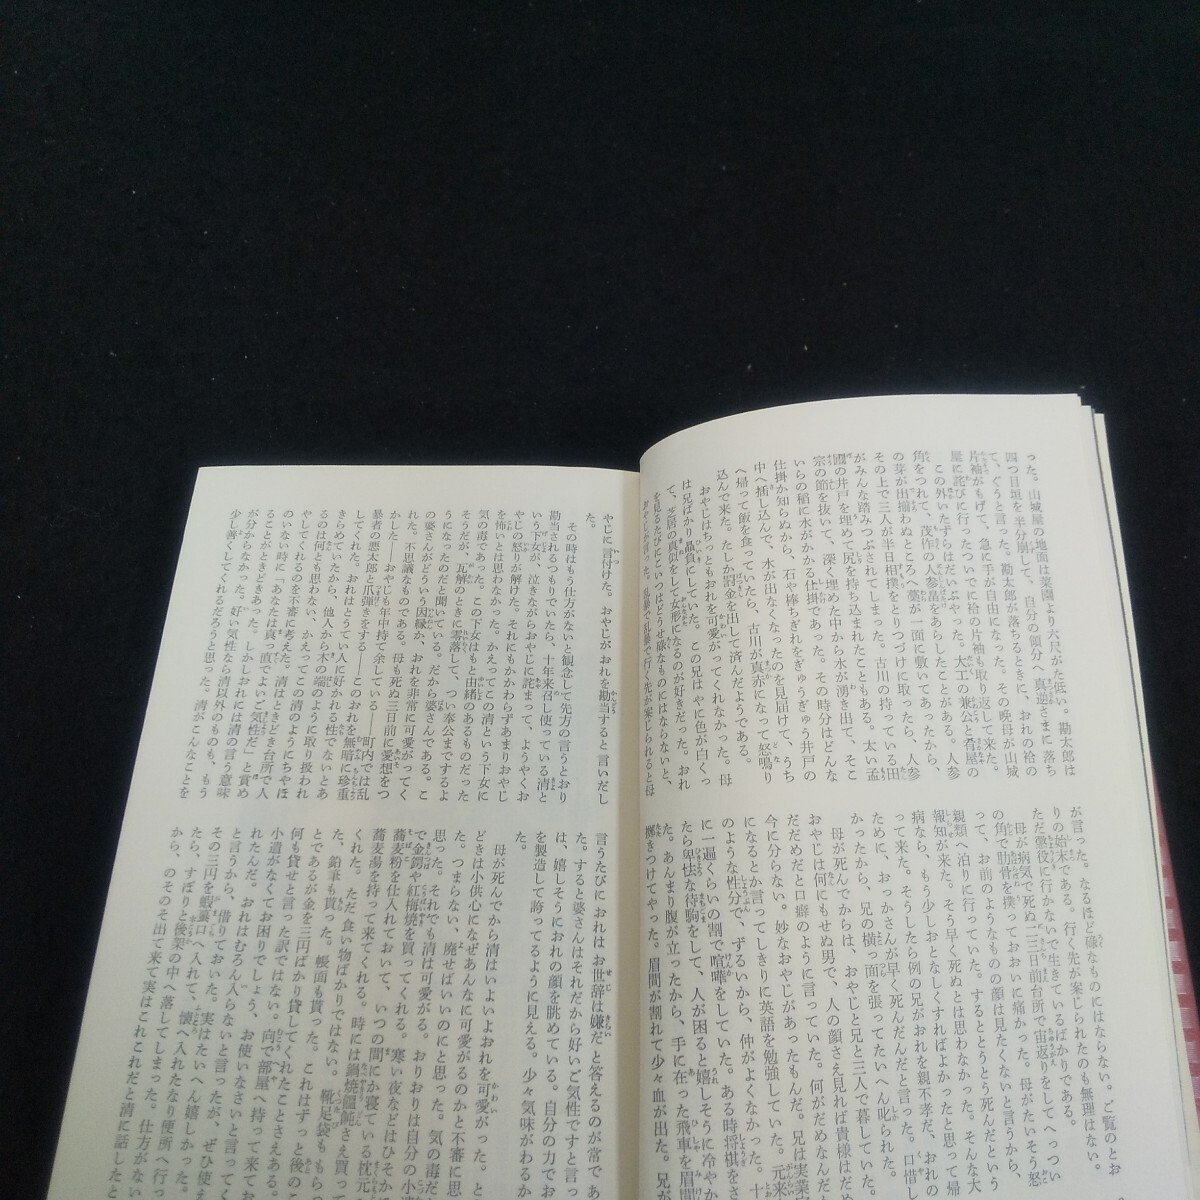 った。山城屋の地面は菜園より六尺がた低い。勘太郎は
四つ目垣を半分崩して、自分の領分へ真逆さまに落ち
て、ぐうと言った。勘太郎が落ちるときに、おれの袷の
片袖がもげて、急に手が自由になった。その晩母が山城
屋に詫びに行ったついでに袷の片袖も取り返して来た。
この外いたずらはだいぶやった。大工の兼公と肴屋の
角をつれて、茂作の人参畠をあらしたことがある。人参
の芽が出揃わぬところへ藁が一面に敷いてあったから、
その上で三人が半日相撲をとりつづけに取ったら、人参
がみんな踏みつぶされてしまった。古川の持っている田
圃の井戸を埋めて尻を持ち込まれたこともある。太い孟
宗の節を抜いて、深く埋めた中から水が湧き出て、そこ
いらの稲に水がかかる仕掛であった。その時分はどんな
仕掛か知らぬから、石や棒ちぎれをぎゅうぎゅう井戸の
中へ插し込んで、水が出なくなったのを見届けて、うち
へ帰って飯を食っていたら、古川が真赤になって怒鳴り
込んで来た。たしか罰金を出して済んだようである。
おやじはちっともおれを可愛がってくれなかった。母
は兄ばかり贔負にしていた。この兄はやに色が白くっ
て、芝居の真似をして女形になるのが好きだった。おれ
を見るたびにこいつはどうせ碌なものにはならないと、
おやじが言った。乱暴で乱暴で行く先が案じられると母
が言った。なるほど碌なものにはならない。ご覧のとお
りの始末である。行く先が案じられたのも無理はない。
ただ懲役に行かないで生きているばかりである。
母が病気で死ぬ二三日前台所で宙返りをしてへっつい
の角で肋骨を撲っておおいに痛かった。母がたいそう怒
って、お前のようなものの顔は見たくないと言うから、
親類へ泊りに行っていた。するととうとう死んだという
報知が来た。そう早く死ぬとは思わなかった。そんな大
病なら、もう少しおとなしくすればよかったと思って帰
って来た。そうしたら例の兄がおれを親不孝だ、おれの
ために、おっかさんが早く死んだんだと言った。口惜し
かったから、兄の横っ面を張ってたいへん叱られた。
母が死んでからは、おやじと兄と三人で暮していた。
おやじは何にもせぬ男で、人の顔さえ見れば貴様はだめ
だだめだと口癖のように言っていた。何がだめなんだ
今に分らない。妙なおやじがあったもんだ。兄は実業
になるとか言ってしきりに英語を勉強していた。元来
のような性分で、ずるいから、仲がよくなかった。十
に一遍くらいの割で喧嘩をしていた。ある時将棋をさ
たら卑怯な待駒をして、人が困ると嬉しそうに冷やか
た。あんまり腹が立ったから、手に在った飛車を眉間
擲きつけてやった。眉間が割れて少々血が出た。兄が
やじに言付けた。おやじがおれを勘当すると言いだし
た。
その時はもう仕方がないと観念して先方の言うとおり
勘当されるつもりでいたら、十年来召し使っている清と
いう下女が、泣きながらおやじに詫まって、ようやくお
やじの怒りが解けた。それにもかかわらずあまりおやじ
を怖いとは思わなかった。かえってこの清という下女に
気の毒であった。この下女はもと由緒のあるものだった
そうだが、瓦解のときに零落して、つい奉公までするよ
うになったのだと聞いている。だから婆さんである。こ
の婆さんがどういう因縁か、おれを非常に可愛がってく
れた。不思議なものである。母も死ぬ三日前に愛想をつ
かした――おやじも年中持て余している――町内では乱
暴者の悪太郎と爪弾きをする――このおれを無暗に珍重
してくれた。おれはとうてい人に好かれる性でないとあ
きらめていたから、他人から木の端のように取り扱われ
るのは何とも思わない、かえってこの清のようにちやほ
やしてくれるのを不審に考えた。清はときどき台所で人
のいない時に「あなたは真っ直でよいご気性だ」と賞め
ることがときどきあった。しかしおれには清の言う意味
が分からなかった。好い気性なら清以外のものも、もう
少し善くしてくれるだろうと思った。清がこんなことを
言うたびにおれはお世辞は嫌だと答えるのが常であ
た。すると婆さんはそれだから好いご気性ですと言っ
は、嬉しそうにおれの顔を眺めている。自分の力でお
を製造して誇ってるように見える。少々気味がわるか
た。
母が死んでから清はいよいよおれを可愛がった。と
どきは小供心になぜあんなに可愛がるのかと不審に思
た。つまらない、廃せばいいのにと思った。気の毒だ
思った。それでも清は可愛がる。おりおりは自分の小遣
で金鍔や紅梅焼を買ってくれる。寒い夜などはひそか
蕎麦粉を仕入れておいて、いつの間にか寝ている枕元
蕎麦湯を持って来てくれる。時には鍋焼饂飩さえ買って
くれた。ただ食い物ばかりではない。靴足袋ももらっ
た、鉛筆も貰った。帳面も貰った。これはずっと後のこ
とであるが金を三円ばかり貸してくれたことさえある。
何も貸せと言った訳ではない。向で部屋へ持って来てお
小遣がなくてお困りでしょう、お使いなさいと言ってく
れたんだ。おれはむろん入らないと言ったが、ぜひ使え
と言うから、借りておいた。実はたいへん嬉しかった。
その三円を蝦蟇口へ入れて、懐へ入れたなり便所へ行っ
たら、すぽりと後架の中へ落してしまった。仕方がない
から、のそのそ出て来て実はこれこれだと清に話したと